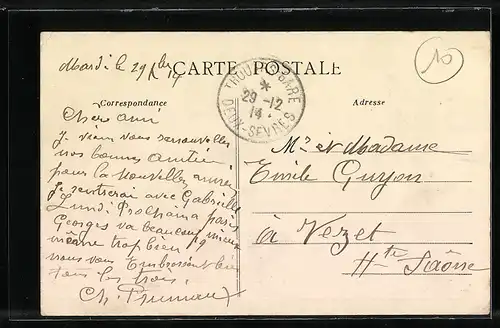 Mardi le 29 Xbre 14
CARTE POSTALE
THOUARS-GARE
29-12
14
DEUX-SEVRES
10
Correspondance
Adresse
Chers amis
Je viens vous renouveller
nos bonnes amitiés
pour la nouvelles année
Je rentrerai avec Gabrielle
Lundi Prochain a Paris
Georges va beaucoup mieux
même trop bien
nous vous Embrassent bien
tous les trois.
Ch.
Mr et Madame
Emile Guyon
à Vezet
Hte Saône